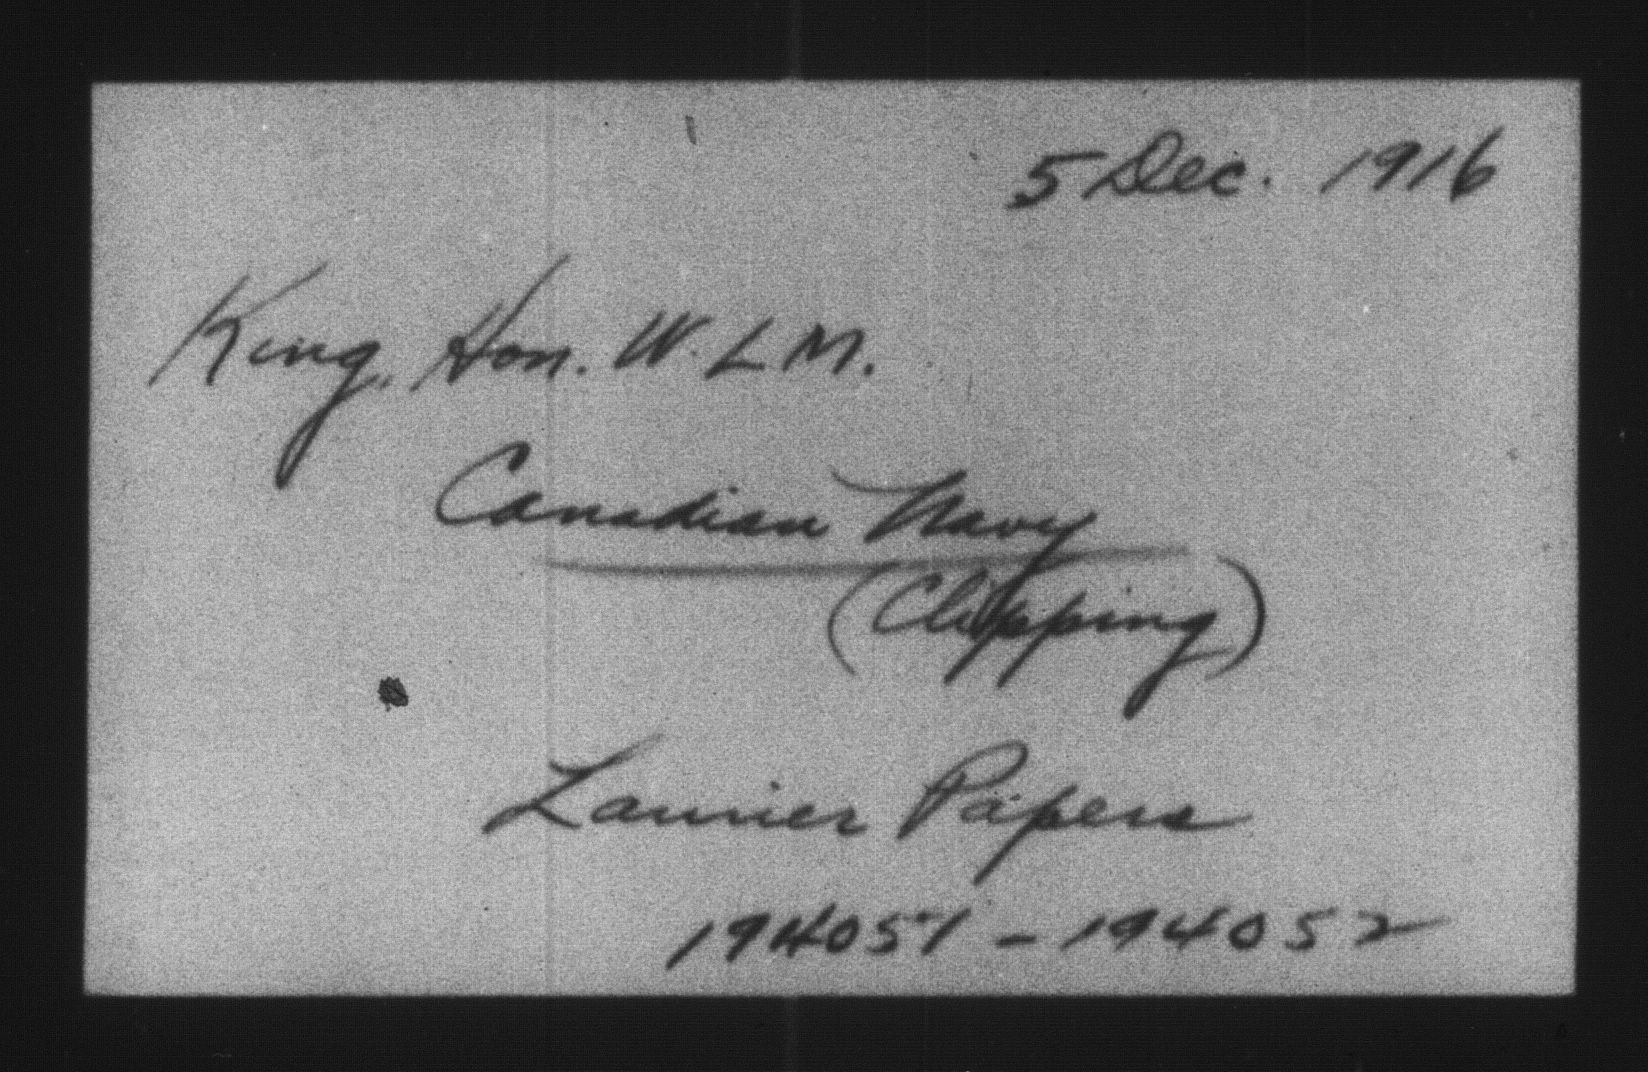 5 Dec. 1916
King, Hon. W. L M.
Canadian Navy
(Clipping)
Laurier Papers
194051 - 194052